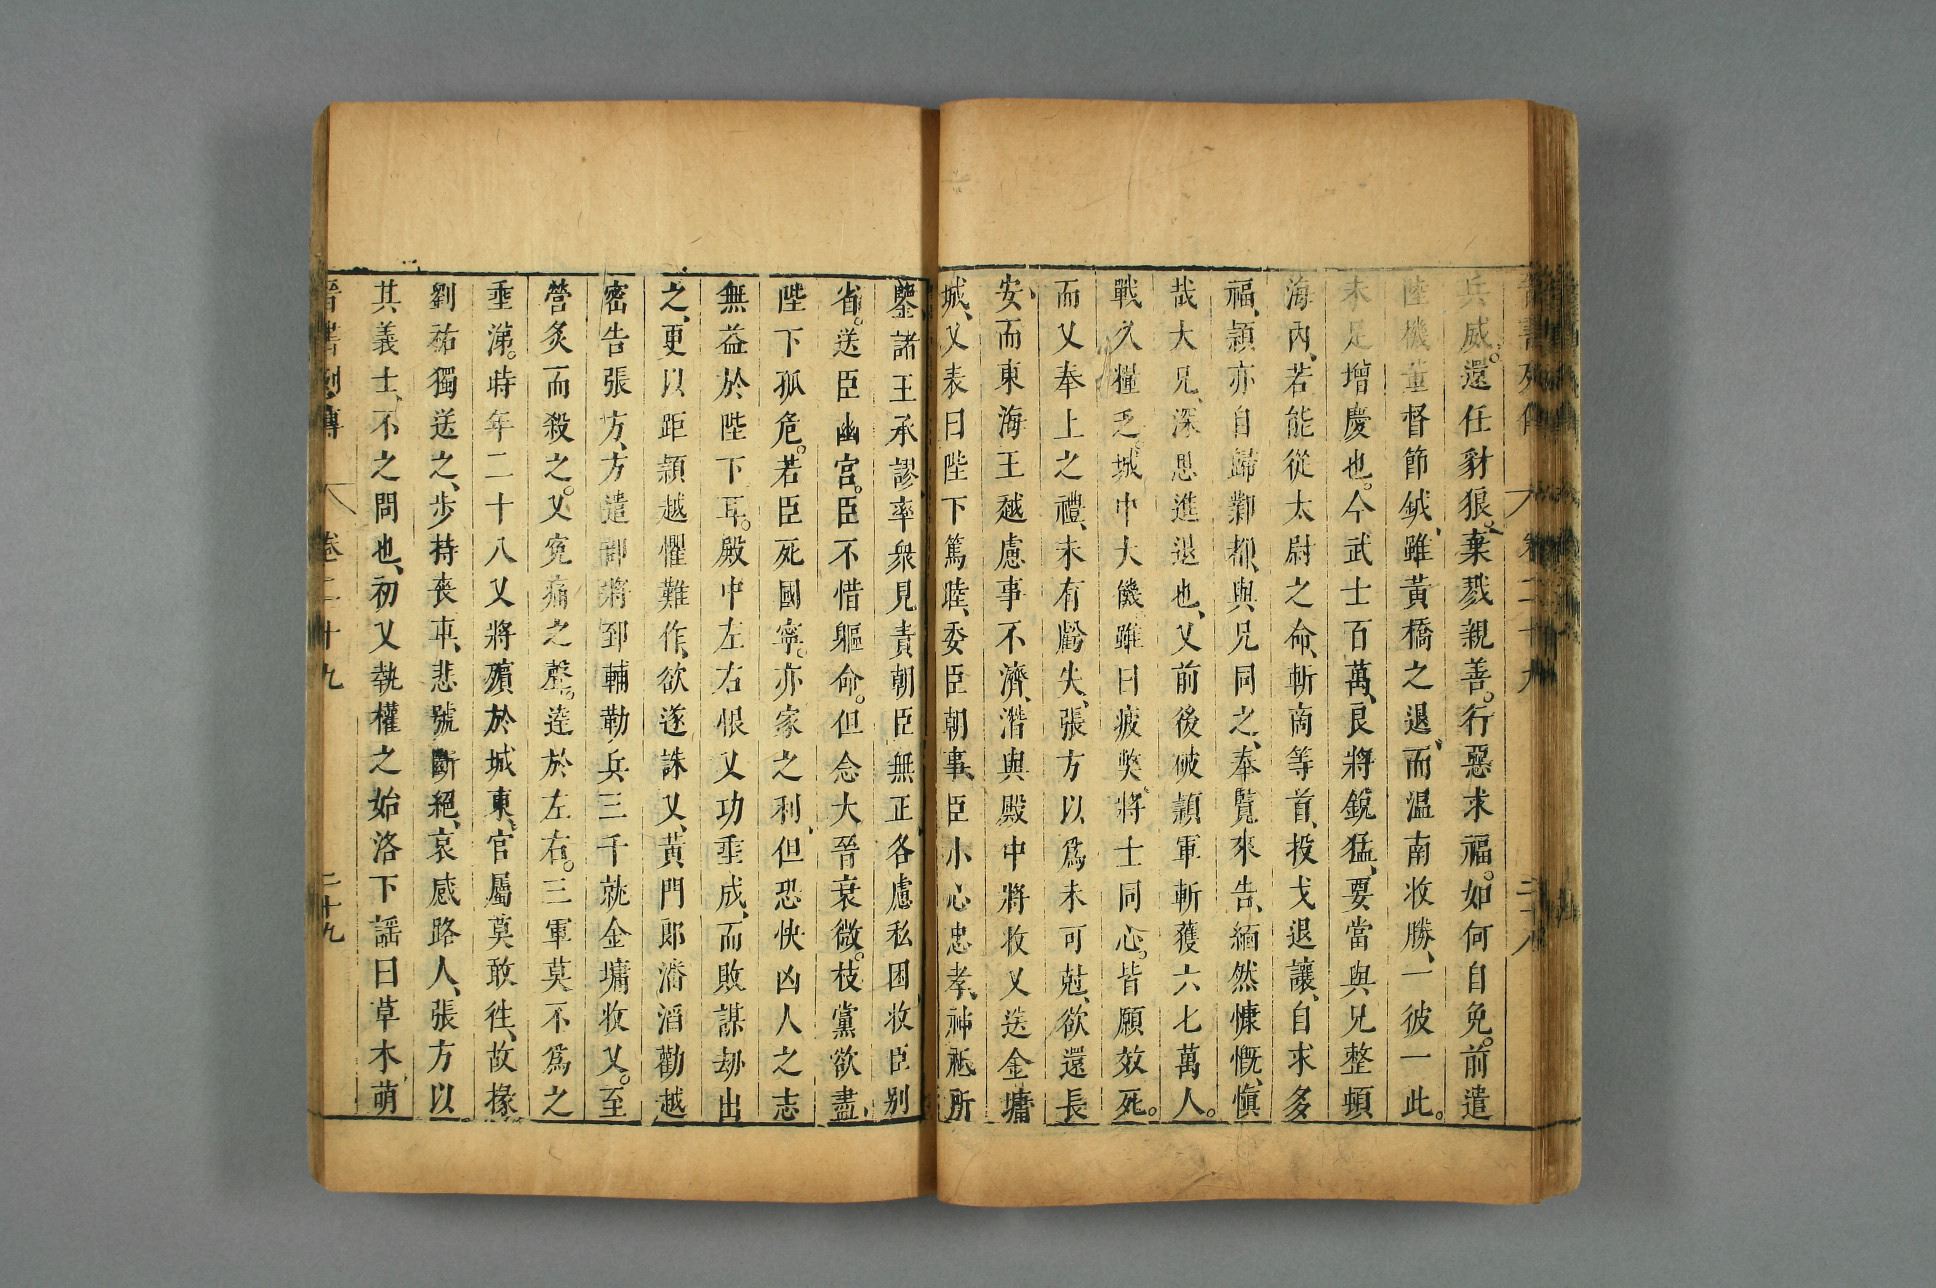 晉書列傳 卷二十九 二十八
兵威。還任豺狼、棄戮親善。行惡求福。如何自免。前遣
陸機董督節鉞、雖黃橋之退、而温南收勝、一彼一此。
未足增慶也。今武士百萬、良將銳猛、要當與兄整頓
海內、若能從太尉之命、斬商等首、投戈退讓、自求多
福、穎亦自歸鄴都、與兄同之、奉覽來告、緬然慷慨、愼
哉大兄、深思進退也、乂前後破穎軍斬獲六七萬人。
戰久糧乏、城中大饑、雖曰疲獘、將士同心。皆願效死。
而乂奉上之禮、未有虧失、張方以爲未可尅、欲還長
安、而東海王越慮事不濟、潛與殿中將收乂送金墉
城、乂表曰陛下篤睦、委臣朝事、臣小心忠孝、神祇所
鑒諸王承謬率衆見責朝臣無正各慮私困收臣別
省。送臣幽宮。臣不惜軀命。但念大晉衰微。枝黨欲盡、
陛下孤危。若臣死國寧。亦家之利、但恐快凶人之志
無益於陛下耳。殿中左右恨乂功垂成、而敗謀劫出
之、更以距穎越懼難作、欲遂誅乂、黃門郎潘滔勸越
密告張方、方遣部將郅輔勒兵三千就金墉收乂。至
營炙而殺之。乂寃痛之聲。逹於左右。三軍莫不爲之
垂涕。時年二十八乂將殯於城東、官屬莫敢徃、故掾
劉祐獨送之、步持喪車、悲號斷絕、哀感路人、張方以
其義士、不之問也、初乂執權之始洛下謡曰草木萌
晉書列傳 卷二十九 二十九